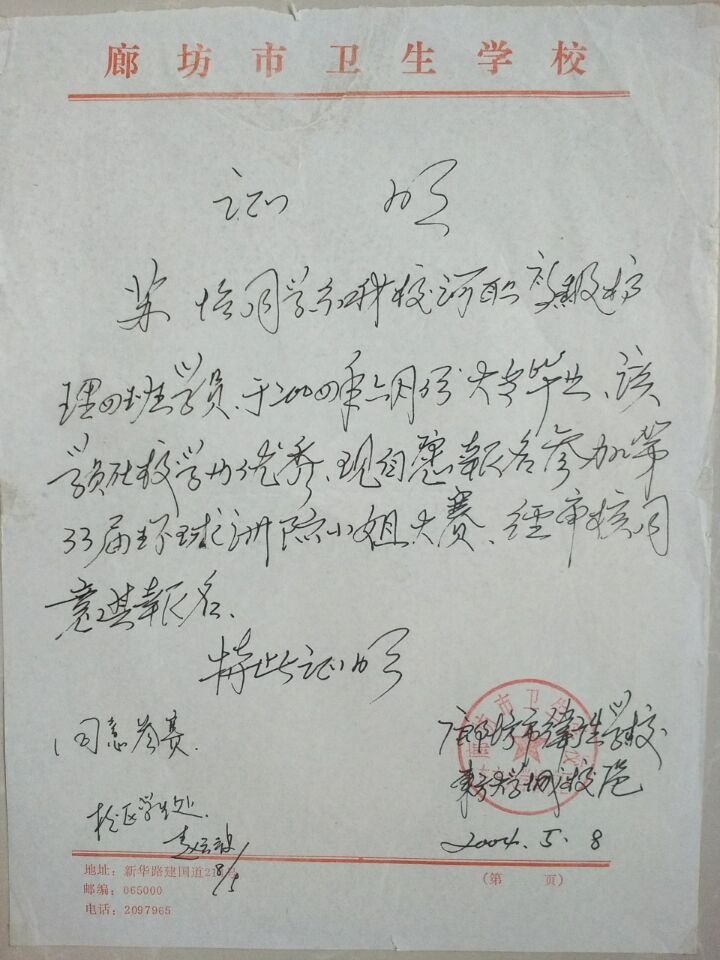 廊坊市卫生学校
证 明
苏怡同学系我校高职 级护
理四班学员、于二00四年六月份大专毕业、该
学员在校学习优秀、现自愿報名参加第
33届环球洲际小姐大赛、经审核同
意其報名、
特此证明
同意参赛.
廊坊市衛生学校
東方大学城校区
校区学生处.
8/5
2004.5.8
地址：新华路建国道21
邮编：065000
电话：2097965
(第 页)
市卫生